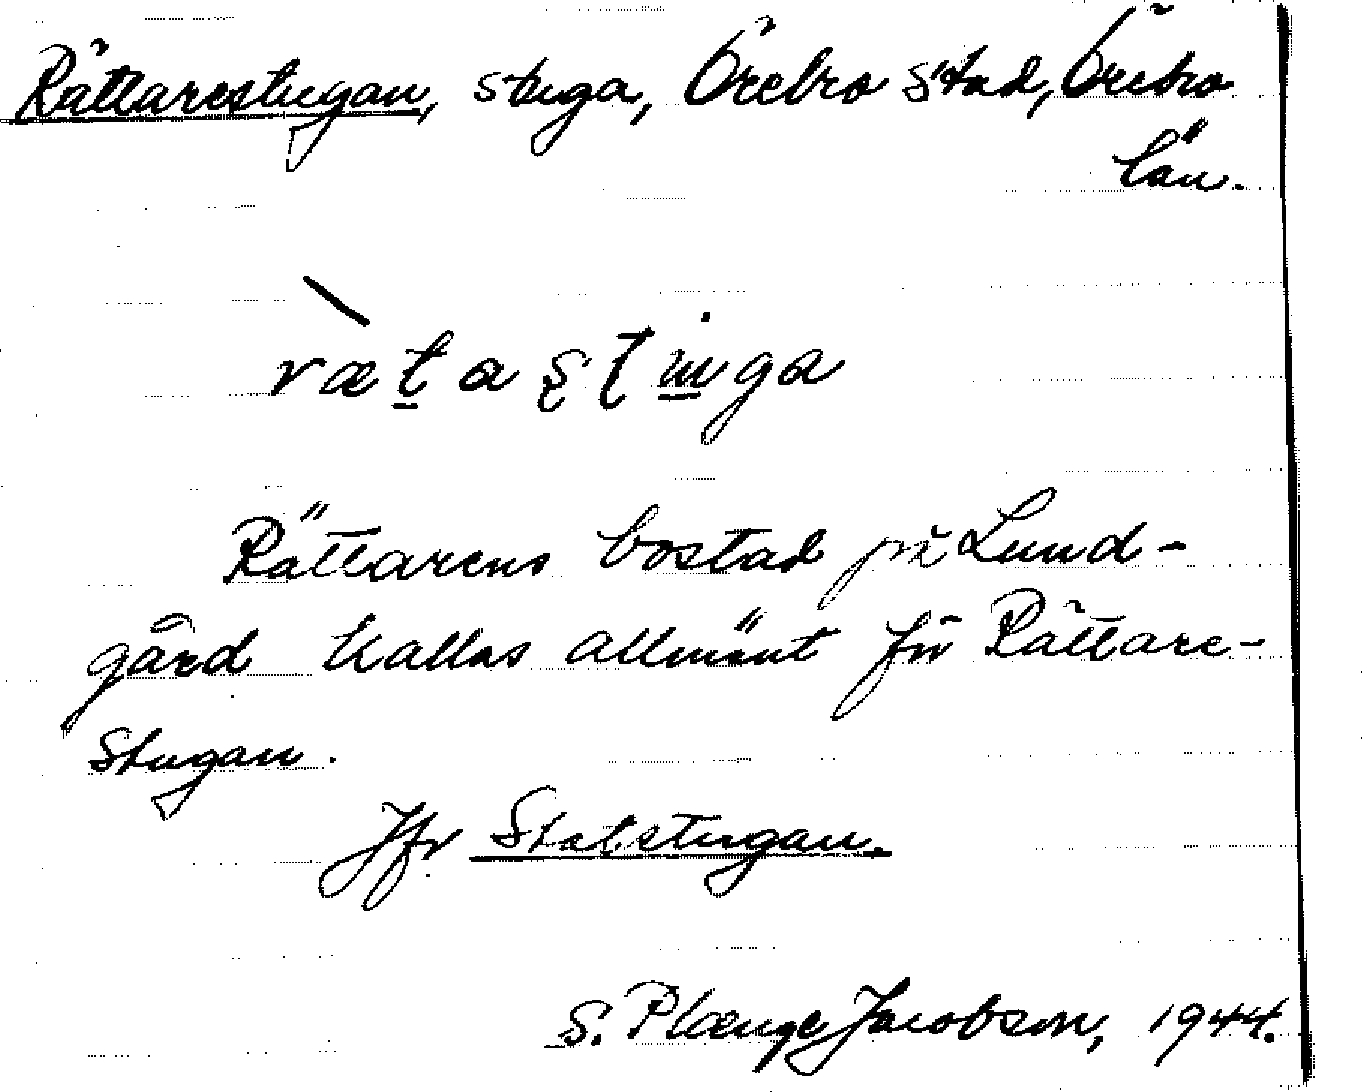 Rättarestugan, stuga, Örebro stad, Örebro
län.
Rättarens bostad på Lund-
gård kallas allmänt för Rättare-
stugan.
Jfr Statstugan.
S. Plænge Jacobson, 1944.